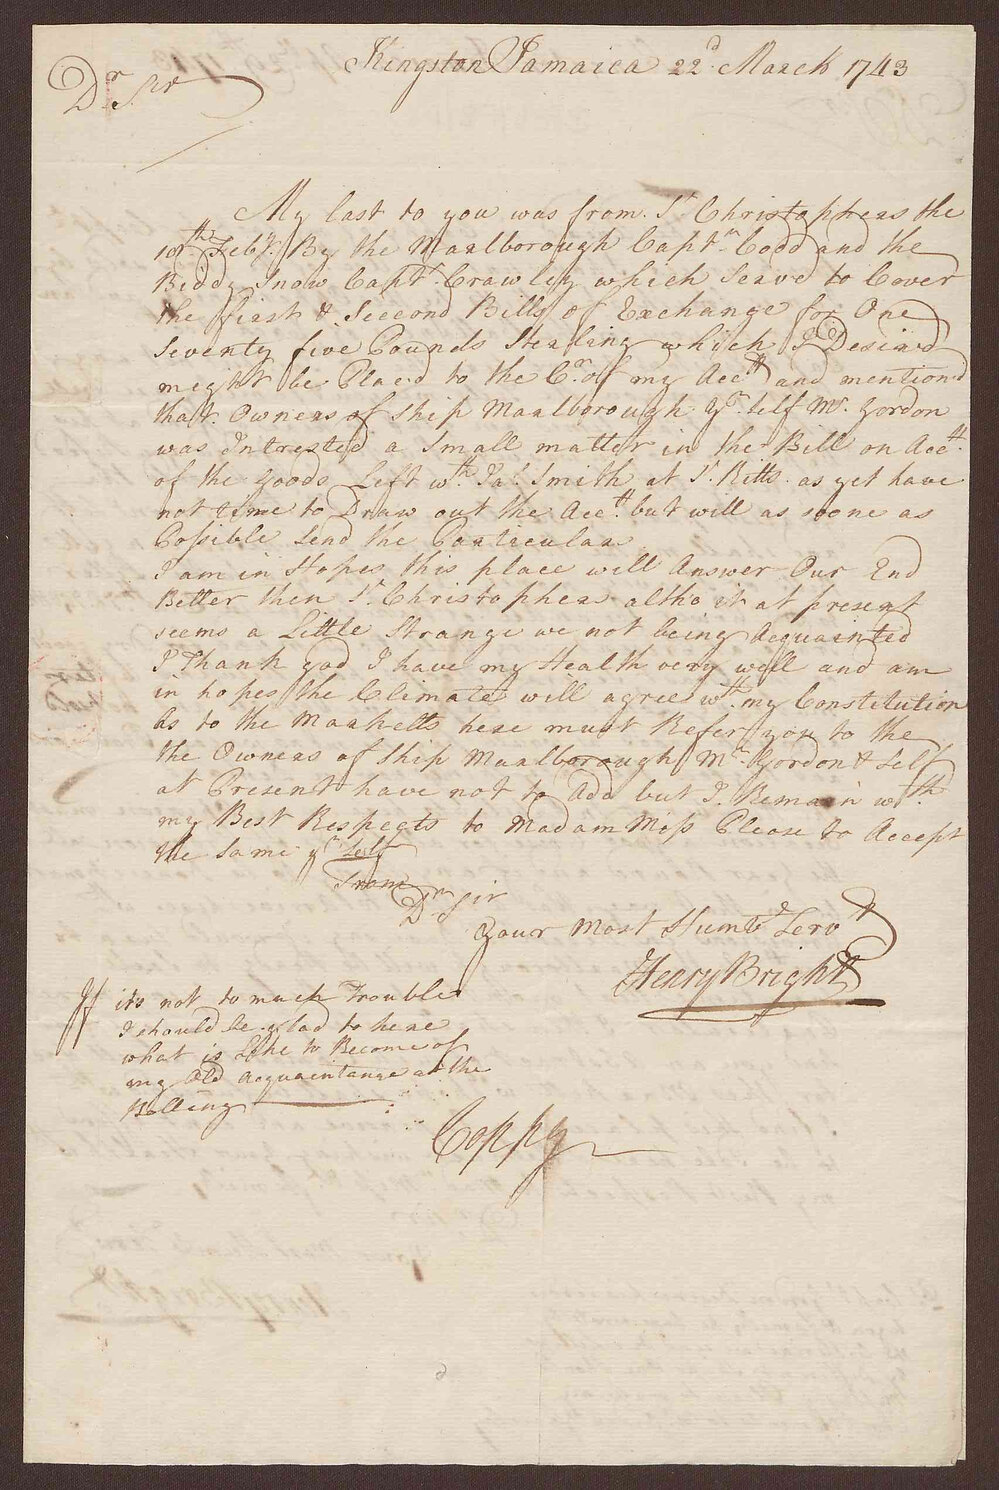 Kingston Jamaica 22d March 1743
Dr Sir
My last to you was from St Christophers the
10th Feby. By the Marlborough Captn Codd and the
Biddy Snow Capt Crawley which Serv'd to Cover
the first & Seccond Bills of Exchange for One
Seventy five Pounds Sterling which I Desir'd
might be Plac'd to the Cr. of my Acctt and mention'd
that Owners of Ship Marlborough Yr. self Mr. Gordon
was Intrested a Small matter in the Bill on Acctt.
of the Goods Left wth. Jas. Smith at St Kitts as yet have
not time to Draw out the Acctt. but will as soone as
Possible Send the Particular
I am in Hopes this place will Answer Our End
Better then St Christopher altho it at present
seems a Little Strange we not being Acquainted
I Thank god I have my Health very well and am
in hopes the Climate will agree wth. my Constitution
As to the Marketts here must Refer you to the
the Owners of Ship Marlborough Mr Gordon & Self
at Present have not to Add but I Remain wth.
my Best Respects to Madam Miss Please to Accept
the same yr Self
From
Dr Sir
Your Most Humbe Servt
Henry Bright
If its not to much Trouble
I should be glad to here
what is Like to Become of
my Old Acquaintance at the
Bolling
Coppy